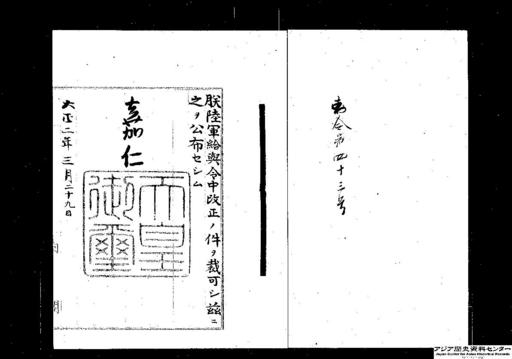 勅令第四十三号
朕陸軍給與令中改正ノ件ヲ裁可シ茲ニ
之ヲ公布セシム
嘉仁
天皇
御璽
大正二年三月二十九日
内閣
アジア歴史資料センター
Japan Center for Asian Historical Records